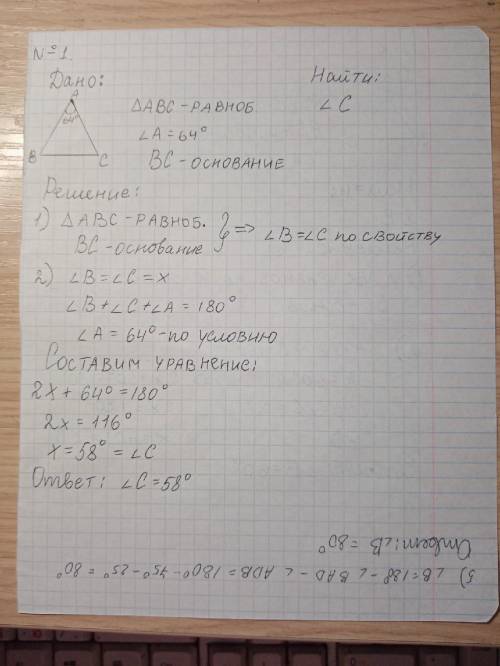 №1.
Дано:
Найти:
A
64°
B
C
△ABC - РАВНОБ.
∠C
∠A = 64°
BC - основание
Решение:
1) △ABC - РАВНОБ.
BC - основание } => ∠B = ∠C по свойству
2) ∠B = ∠C = x
∠B + ∠C + ∠A = 180°
∠A = 64° - по условию
Составим уравнение:
2x + 64° = 180°
2x = 116°
x = 58° = ∠C
Ответ: ∠C = 58°
5) ∠B = 188 - ∠BAD - ∠ADB = 180° - 75° - 25° = 80°
Ответ: ∠B = 80°